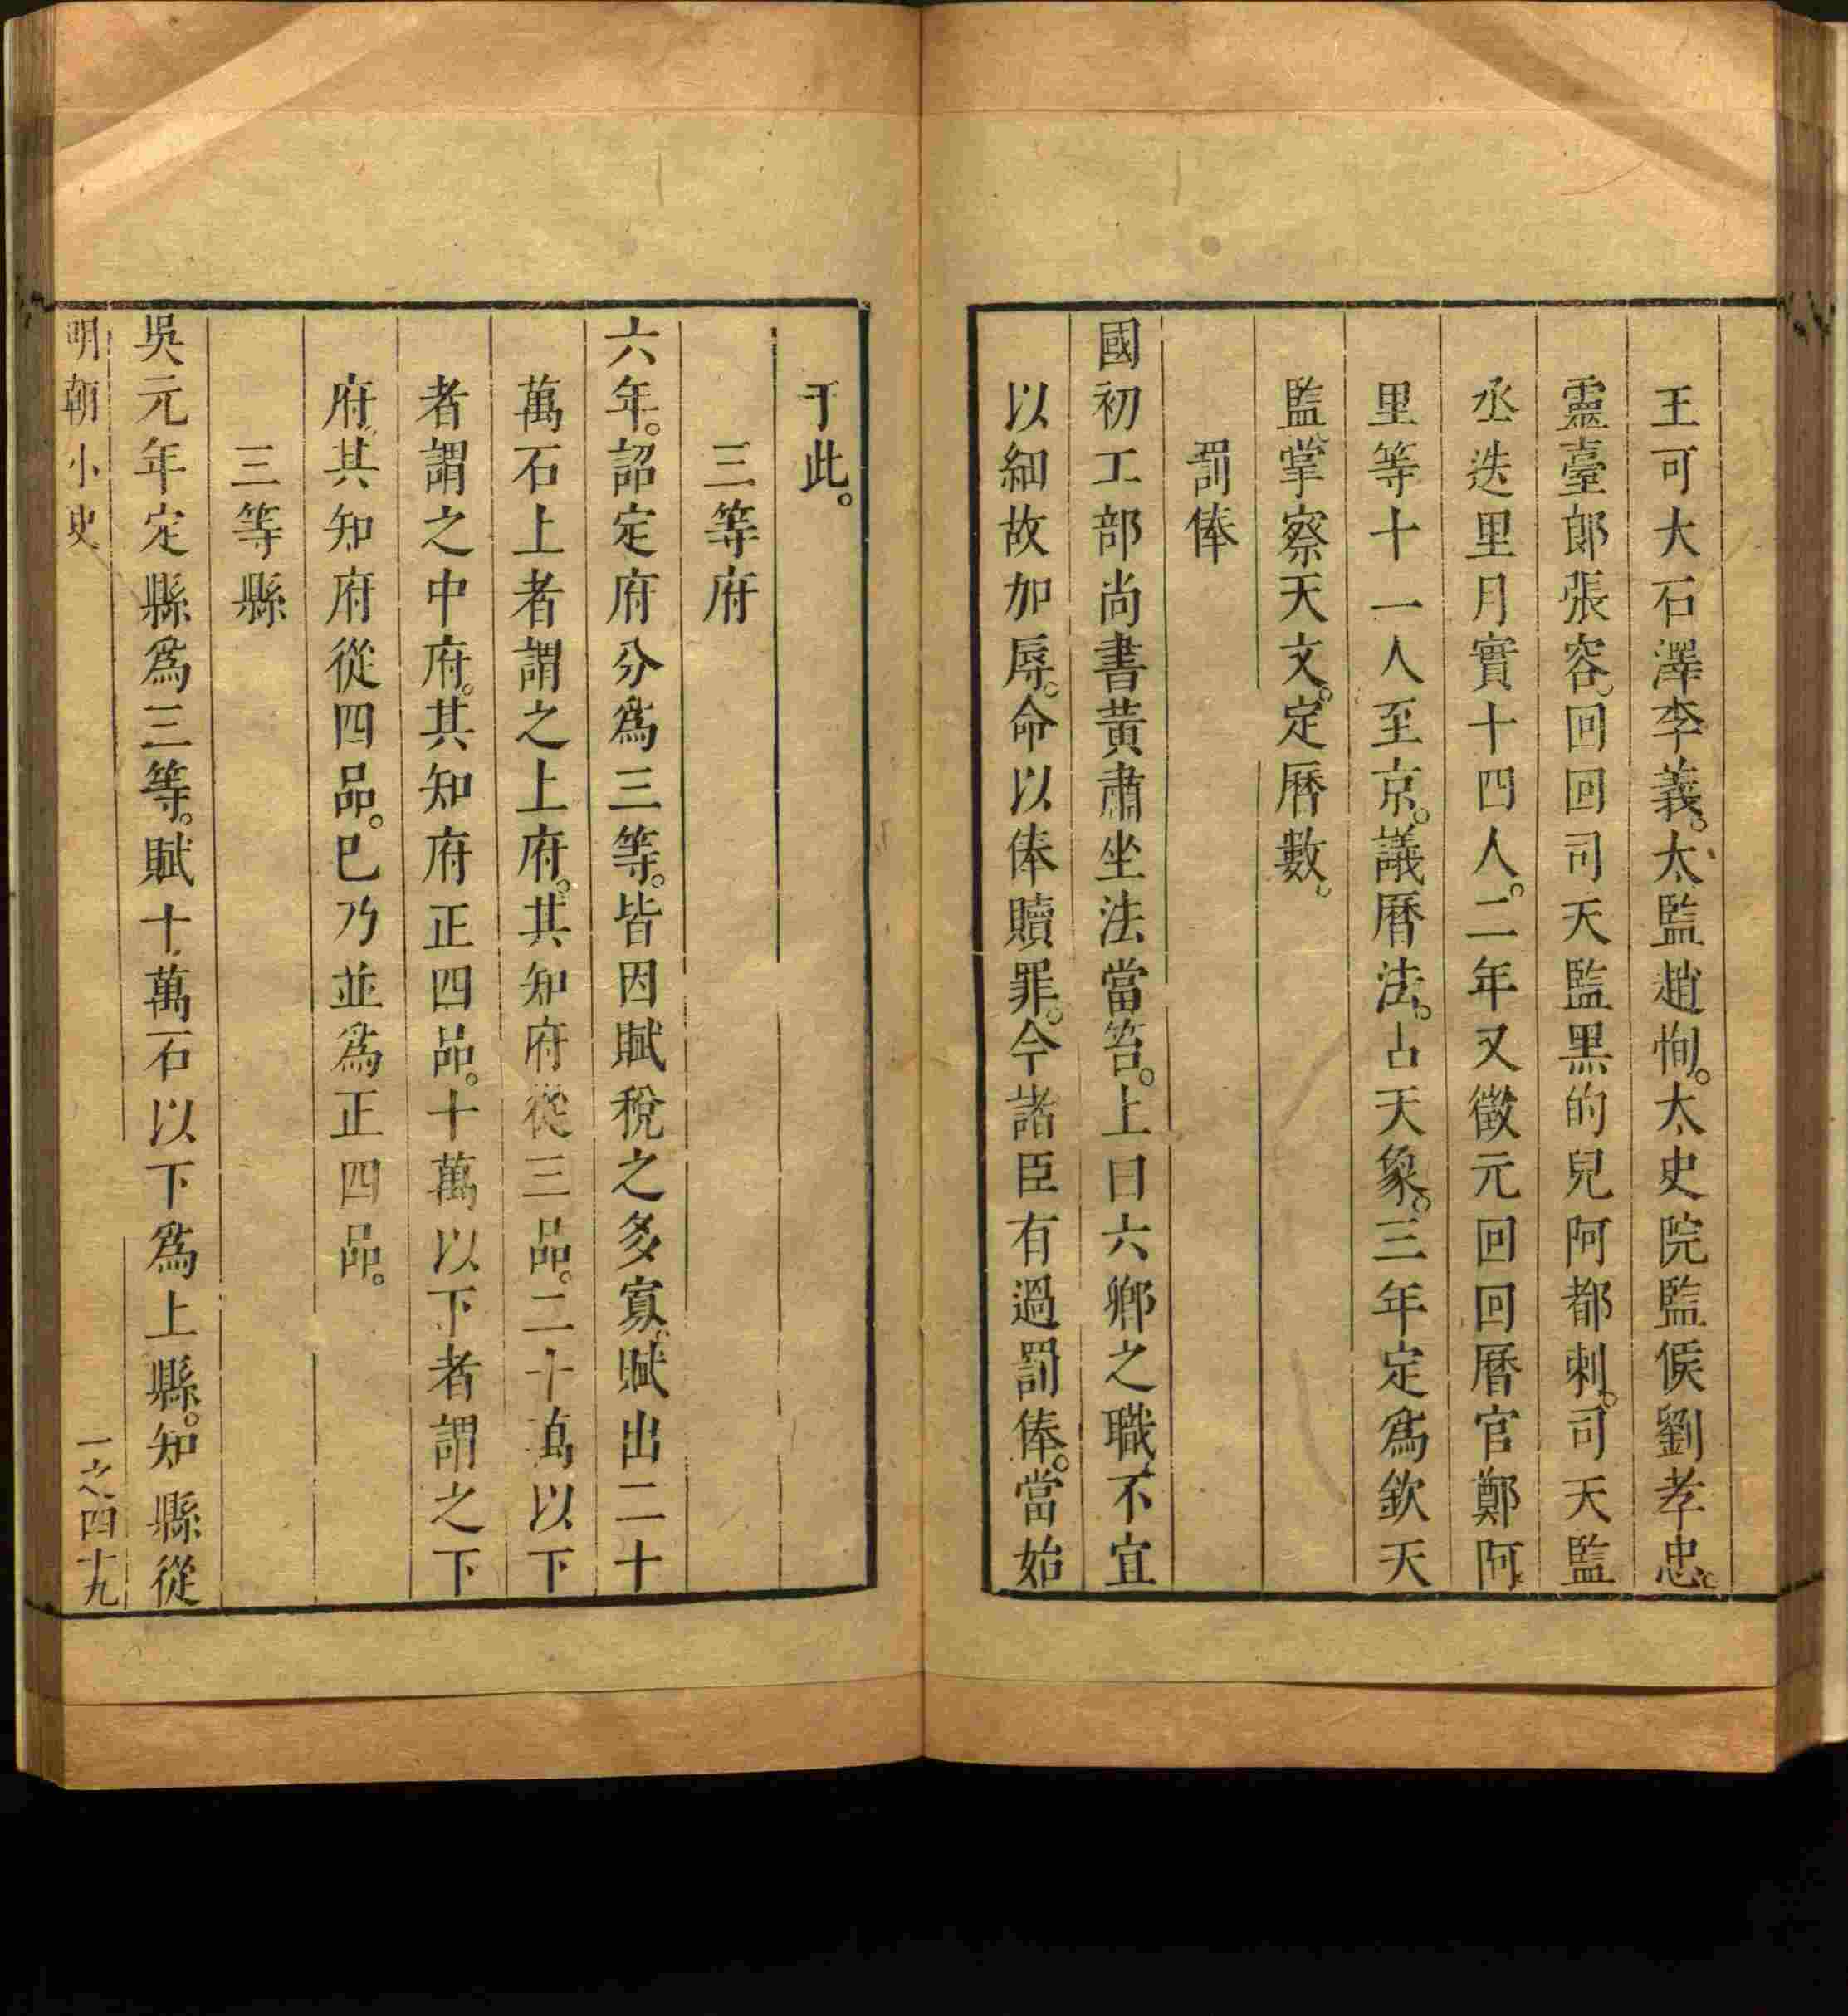 王可大石澤李義。太監趙恂。太史院監候劉孝忠。
靈臺郎張容。回回司天監黑的兒阿都剌。司天監
丞迭里月實十四人。二年又徵元回回曆官鄭阿
里等十一人至京。議曆法。占天象。三年定爲欽天
監、掌察天文。定曆數。
罰俸
國初工部尚書黃肅坐法當笞。上曰六卿之職、不宜
以細故加辱。命以俸贖罪。今諸臣有過罰俸。當始
于此。
三等府
六年。詔定府分爲三等。皆因賦稅之多寡、賦出二十
萬石上者謂之上府。其知府從三品。二十萬以下
者謂之中府。其知府正四品。十萬以下者謂之下
府、其知府從四品。已乃並爲正四品。
三等縣
吳元年定縣爲三等。賦十萬石以下爲上縣。知縣從
明朝小史
一之四十九